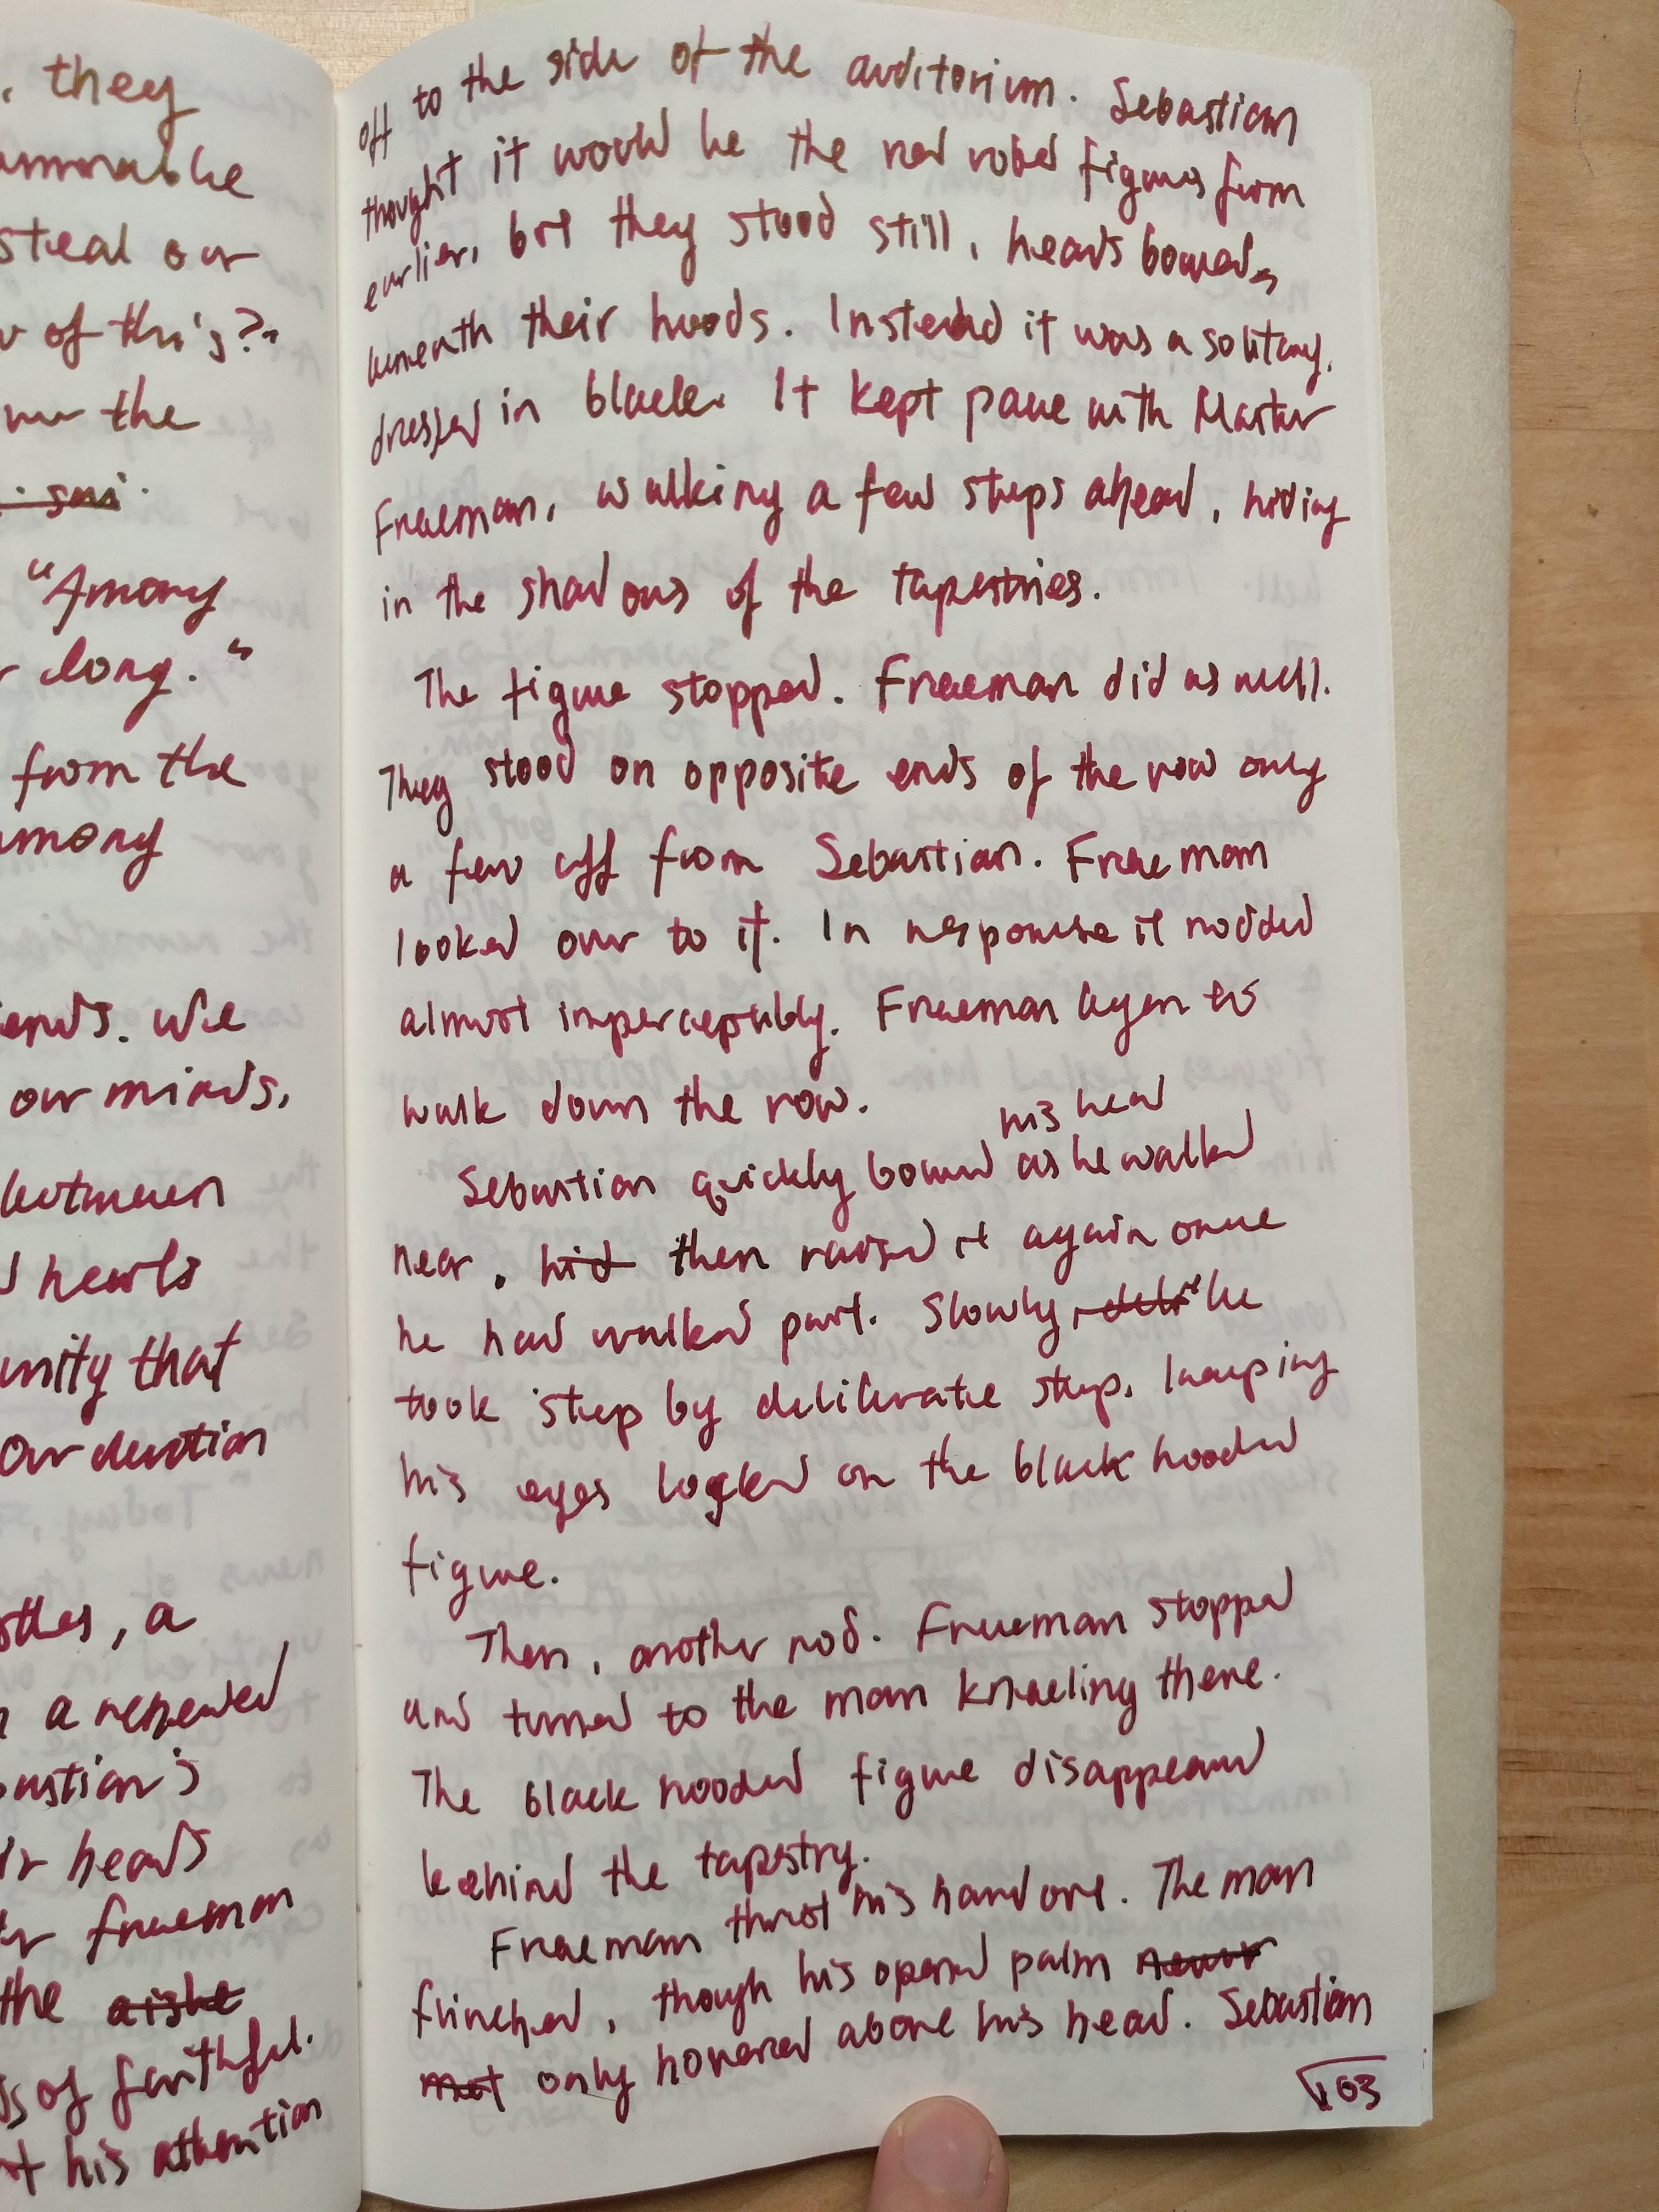 , they
steal our
of this?"
the
"Among
long."
from the
among
We
our minds,
between
hearts
unity that
Our devotion
, a
a renewed
heads
freeman
the aisle
of faithful.
his attention
off to the side of the auditorium. Sebastian
thought it would be the red robed figures from
earlier, but they stood still, heads bowed
beneath their hoods. Instead it was a solitary,
dressed in black. It kept pace with Master
Freeman, walking a few steps ahead, hiding
in the shadows of the tapestries.
The figure stopped. Freeman did as well.
They stood on opposite ends of the row only
a few off from Sebastian. Freeman
looked over to it. In response it nodded
almost imperceptibly. Freeman began to
walk down the row.
his head
Sebastian quickly bowed as he walked
near, hid then raised it again once
he had walked past. Slowly, he
took step by deliberate step, keeping
his eyes locked on the black hooded
figure.
Then, another nod. Freeman stopped
and turned to the man kneeling there.
The black hooded figure disappeared
behind the tapestry.
Freeman thrust his hand out. The man
flinched, though his opened palm never
met only hovered above his head. Sebastian
103